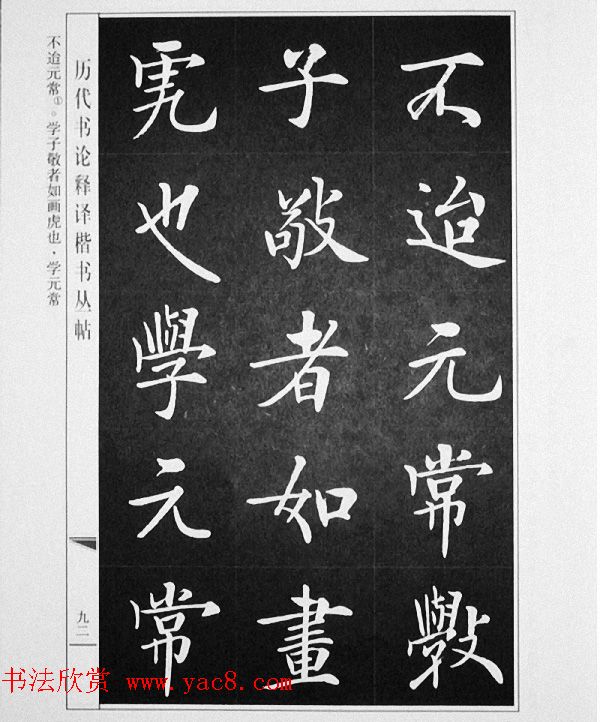 不迨元常斆
子敬者如畫
虎也學元常
历代书论释译楷书丛帖
九二
不迨元常①。学子敬者如画虎也，学元常
书法欣赏 www.yac8.com